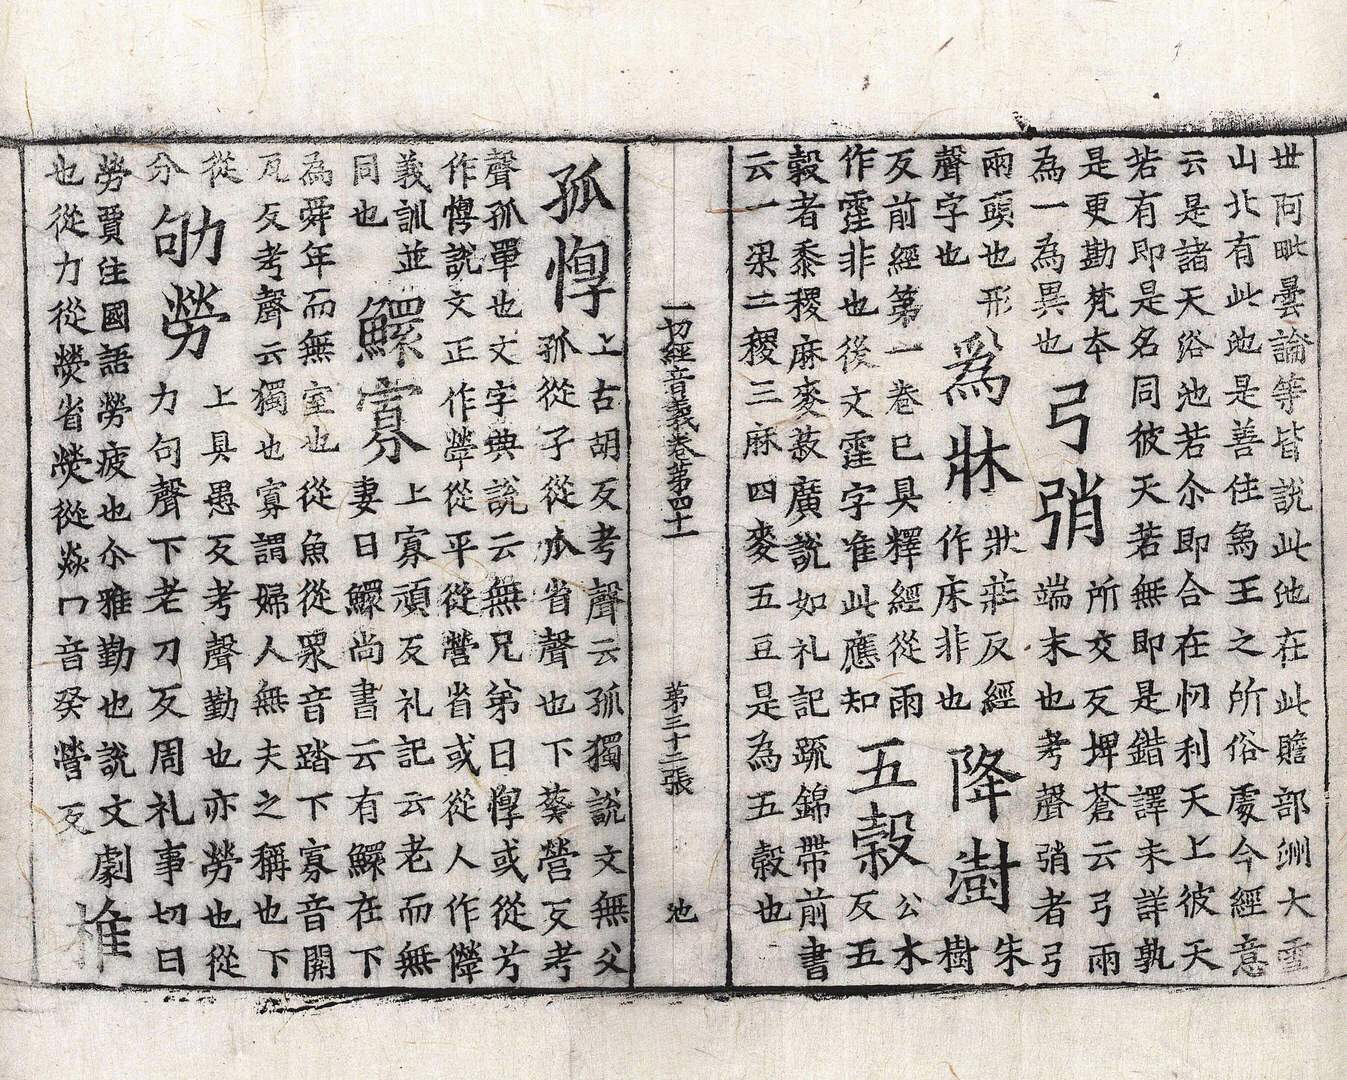 世阿毗曇論等皆說此池在此贍部洲大雪
山北有此池是善住烏王之所俗處今經意
云是諸天浴池若尒即合在忉利天上彼天
若有即是名同彼天若無即是錯譯未詳孰
是更勘梵本 弓弰 所交反埤蒼云弓兩
為一為異也 端末也考聲弰者弓
兩頭也形 為牀 狀莊反經 降澍 朱
聲字也 作床非也 樹
反前經第一卷已具釋經從雨 五穀 公木
作霔非也後文霔字准此應知 反五
穀者黍稷麻麥菽廣說如礼記䟽錦帶前書
云一梁二稷三麻四麥五豆是為五穀也
一切經音義卷第四十 第三十三張 池
孤惸 上古胡反考聲云孤獨說文無父
孤從子從瓜省聲也下葵營反考
聲孤單也文字典說云無兄弟曰惸或從芍
作㥪說文正作煢從平從營省或從人作㒯
義訓並 鰥寡 上寡頑反礼記云老而無
同也 妻曰鰥尚書云有鰥在下
為舜年而無室也從魚從眾音踏下寡音關
瓦反考聲云獨也寡謂婦人無夫之稱也下
從 劬勞 上具愚反考聲勤也亦勞也從
分 力句聲下老刀反周礼事切曰
勞賈住國語勞疲也尒雅勤也說文劇
也從力從熒省熒從焱冂音癸營反 摧